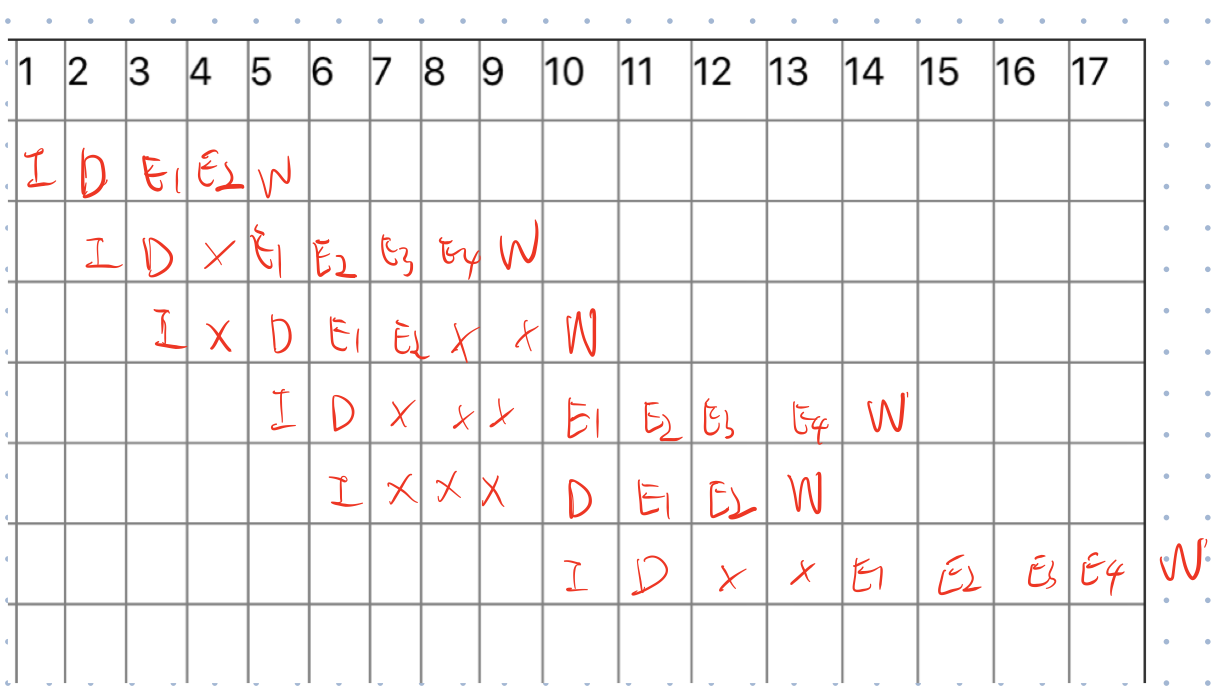 1 2 3 4 5 6 7 8 9 10 11 12 13 14 15 16 17
I D E1 E2 W
I D X E1 E2 E3 E4 W
I X D E1 E2 X X W
I D X X X E1 E2 E3 E4 W
I X X X D E1 E2 W
I D X X E1 E2 E3 E4 W